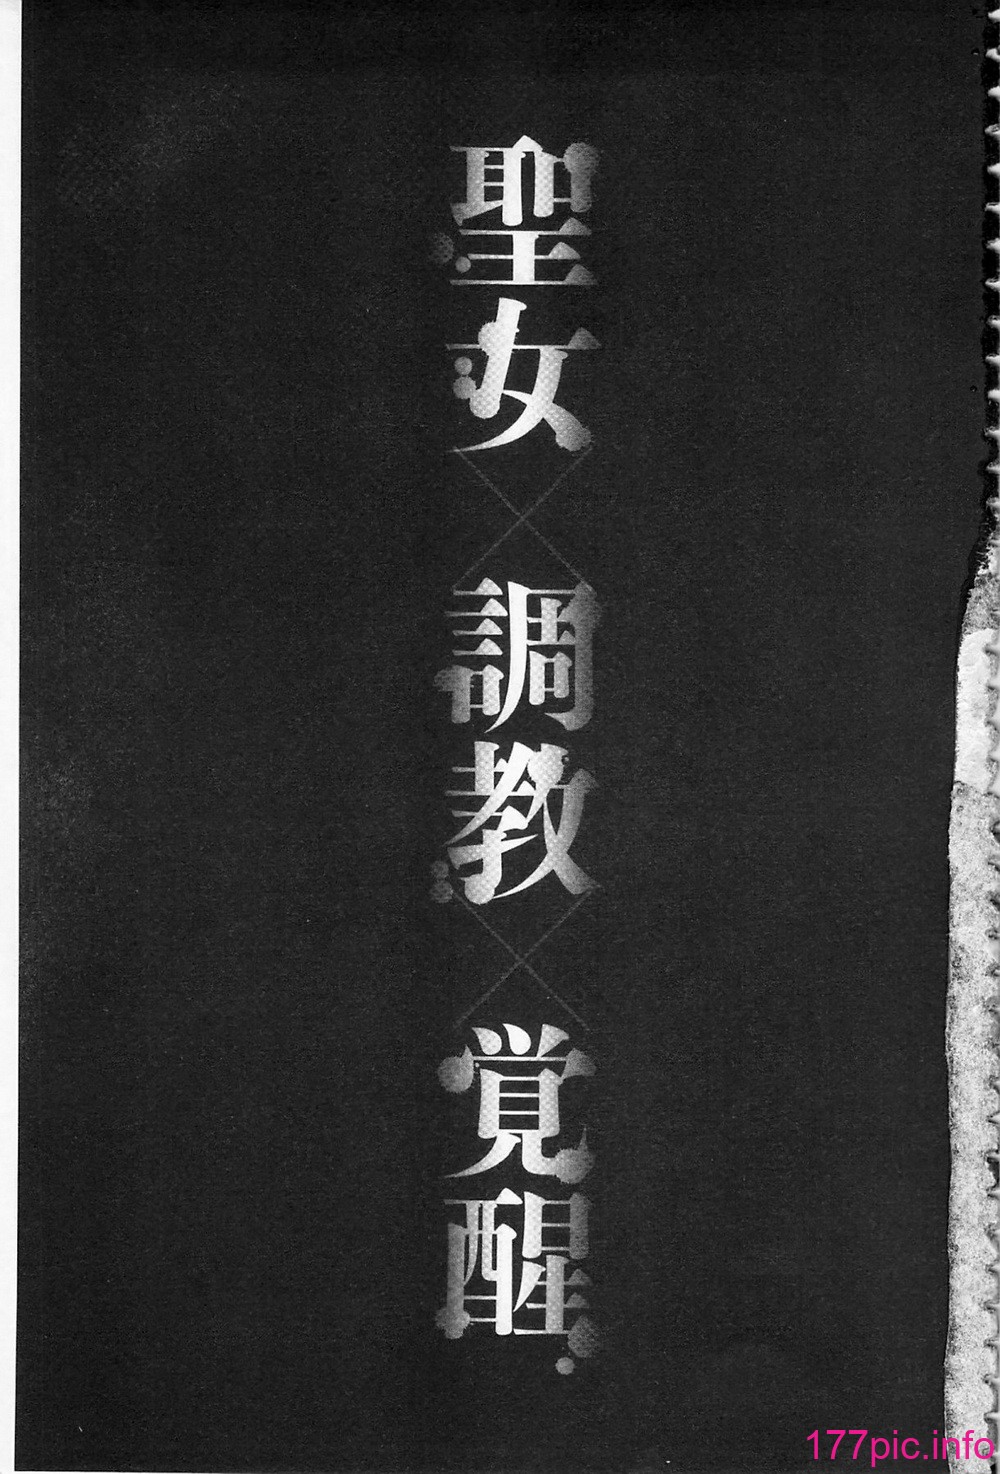 聖女×調教×覚醒
177pic.info